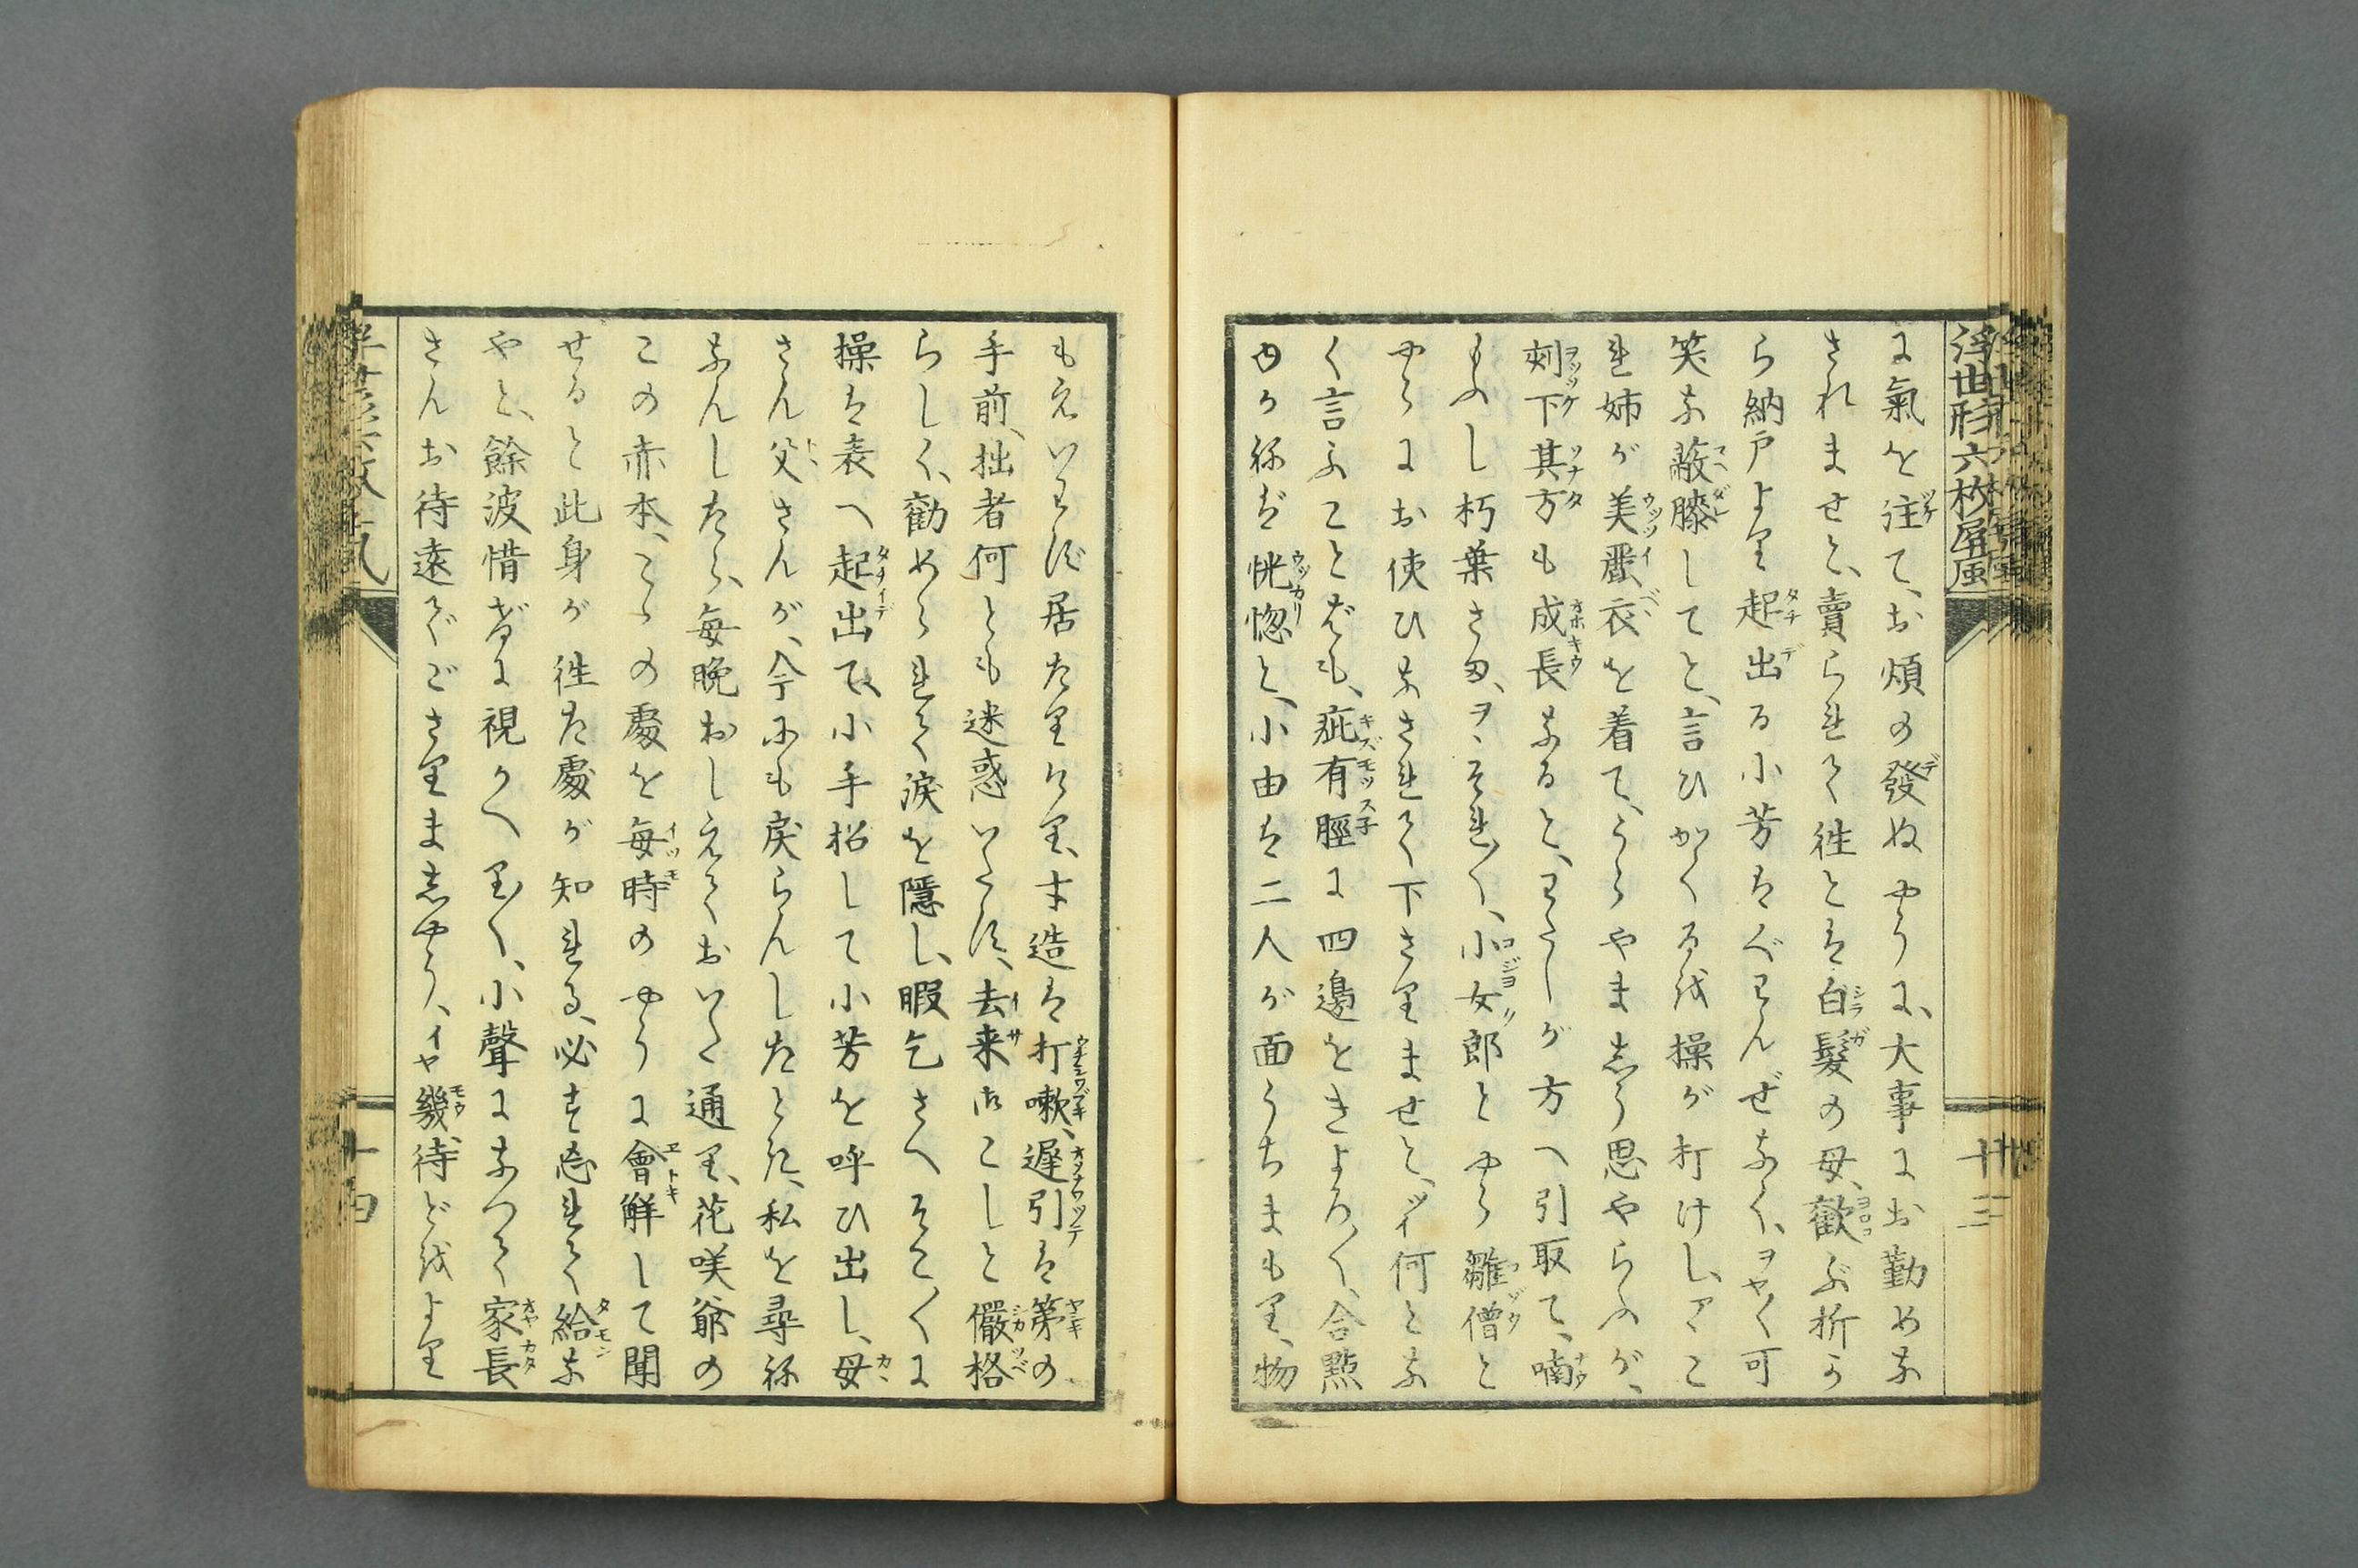 浮世形六枚屏風
十三
に氣を注て、お煩の發ぬやうに、大事にお勤めな
されませと、賣られて徃とは白髪の母、歡ぶ折か
ら納戸より起出る小芳はべりんぜなく、ヲヤ〳〵可
笑な蔽膝してと、言ひかくるを操が打けし、アヽこ
れ姉が美麗衣を着て、うらやましう思やらふが、
刻下其方も成長なると、わたしが方へ引取て、喃
もふし朽葉さま、ヲヽそれ〳〵、小女郎とやら雛僧と
やらにお使ひなされて下さりませと、ツイ何とな
く言ふことばも、疵有脛に四邊をきよろ〳〵、合點
ゆかねば恍惚と、小由は二人が面うちまもり、物
もえいはず居たりけり、才造は打嗽、遲引は第の
手前、拙者何とも迷惑いたす、去来御こしと儼格
らしく、勸められて涙を隱し、暇乞さへそこ〳〵に
操は表へ起出て、小手招して小芳を呼ひ出し、母
さん父さんが、今にも戻らんしたとき、私を尋ね
なんしたら、毎晩おしえておいた通り、花咲爺の
この赤本、こゝの處を毎時のやうに會觧して聞
せると此身が徃た處が知れる、必ず忘れて給な
やと、餘波惜げに視かへり〳〵、小聲になつて家長
さんお待遠でござりましやう、イヤ幾待どをより
十四